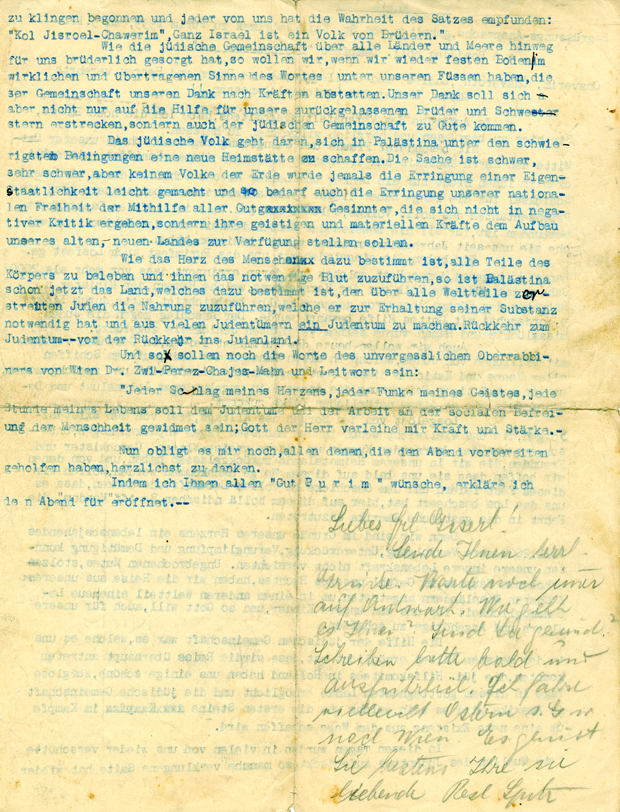 zu klingen begonnen und jeder von uns hat die Wahrheit des Satzes empfunden:
"Kol Jisroel-Chawerim",Ganz Israel ist ein Volk von Brüdern."
Wie die jüdische Gemeinschaft über alle Länder und Meere hinweg
für uns brüderlich gesorgt hat,so wollen wir,wenn wir wieder festen Boden im
wirklichen und übertragenen Sinne des Wortes unter unseren Füssen haben,die
ser Gemeinschaft unseren Dank nach Kräften abstatten.Unser Dank soll sich
aber nicht nur auf die Hilfe für unsere zurückgelassenen Brüder und Schwe
stern erstrecken,sondern auch der jüdischen Gemeinschaft zu Gute kommen.
Das jüdische Volk geht daran,sich in Palästina unter den schwie-
rigsten Bedingungen eine neue Heimstätte zu schaffen.Die Sache ist schwer,
sehr schwer,aber keinem Volke der Erde wurde jemals die Erringung einer Eigen-
staatlichkeit leicht gemacht und so bedarf auch die Erringung unserer nationa-
len Freiheit der Mithilfe aller Gut Gesinnter,die sich nicht in nega-
tiver Kritik ergehen,sondern ihre geistigen und materiellen Kräfte dem Aufbau
unseres alten,-neuen Landes zur Verfügung stellen sollen.
Wie das Herz des Menschen dazu bestimmt ist,alle Teile des
Körpers zu beleben und ihnen das notwendige Blut zuzuführen,so ist Palästina
schon jetzt das Land,welches dazu bestimmt ist,den über alle Weltteile zer-
streuten Juden die Nahrung zuzuführen,welche er zur Erhaltung seiner Substanz
notwendig hat und aus vielen Judentümern ein Judentum zu machen.Rückkehr zum
Judentum--vor der Rückkehr ins Judenland.
Und so sollen noch die Worte des unvergesslichen Oberrabbi-
ners von Wien Dr. Zwi-Perez-Chajes-Mahn und Leitwort sein:
"Jeder Schlag meines Herzens,jeder Funke meines Geistes,jede
Stunde meines Lebens soll dem Judentume und der Arbeit an der sozialen Befrei-
ung der Menschheit gewidmet sein;Gott der Herr verleihe mir Kraft und Stärke.-
Nun obligt es mir noch,allen denen,die den Abend vorbereiten
geholfen haben,herzlichst zu danken.
Indem ich Ihnen allen "Gut P u r i m " wünsche, erkläre ich
den Abend für eröffnet.--
Liebes Frl.
Sende Ihnen
Warte noch immer
auf Antwort. Wie geht
es Ihnen? Sind Sie gesund?
Schreiben bitte bald und
ausführlich. Ich fahre
vielleicht Ostern
nach Wien. Es grüsst
Sie bestens Ihre Sie
liebende